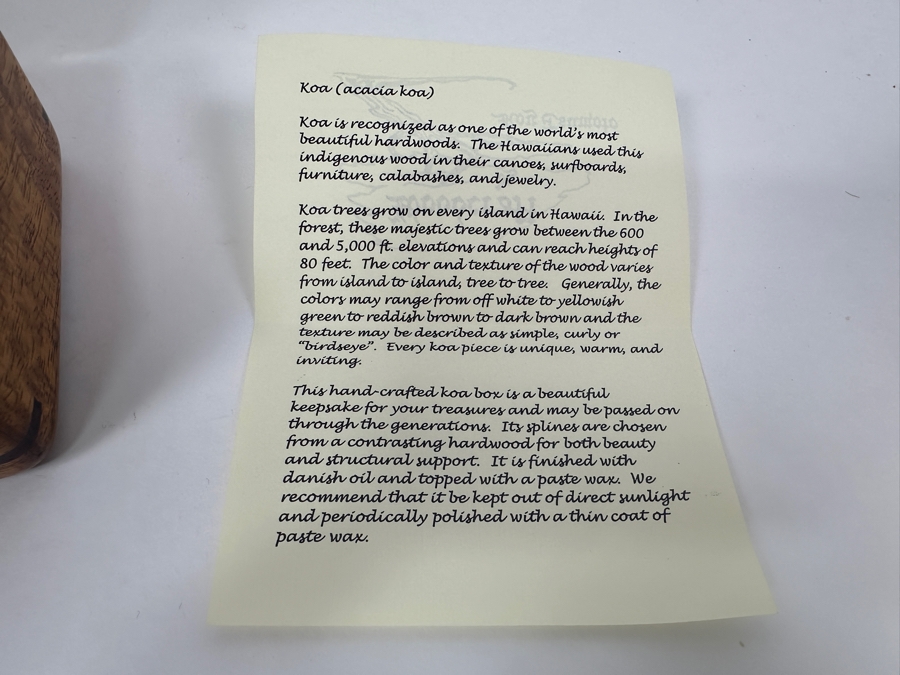 Koa (acacia koa)
Koa is recognized as one of the world's most
beautiful hardwoods. The Hawaiians used this
indigenous wood in their canoes, surfboards,
furniture, calabashes, and jewelry.
Koa trees grow on every island in Hawaii. In the
forest, these majestic trees grow between the 600
and 5,000 ft. elevations and can reach heights of
80 feet. The color and texture of the wood varies
from island to island, tree to tree. Generally, the
colors may range from off white to yellowish
green to reddish brown to dark brown and the
texture may be described as simple, curly or
"birdseye". Every koa piece is unique, warm, and
inviting.
This hand-crafted koa box is a beautiful
keepsake for your treasures and may be passed on
through the generations. Its splines are chosen
from a contrasting hardwood for both beauty
and structural support. It is finished with
danish oil and topped with a paste wax. We
recommend that it be kept out of direct sunlight
and periodically polished with a thin coat of
paste wax.